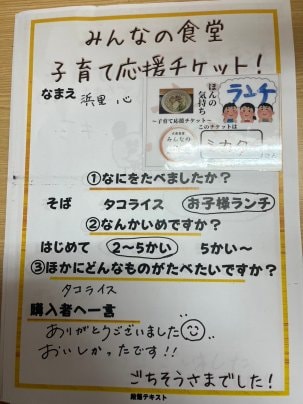 みんなの食堂
子育て応援チケット!
なまえ 浜里 心
ほんの
気持ち
ランチ
~子育て応援チケット~
このチケットは
みんなの
ミカタ
①なにをたべましたか?
そば タコライス お子様ランチ
②なんかいめですか?
はじめて 2~5かい 5かい~
③ほかにどんなものがたべたいですか?
タコライス
購入者へ一言
ありがとうございました
おいしかったです!!
ごちそうさまでした!
段落テキスト